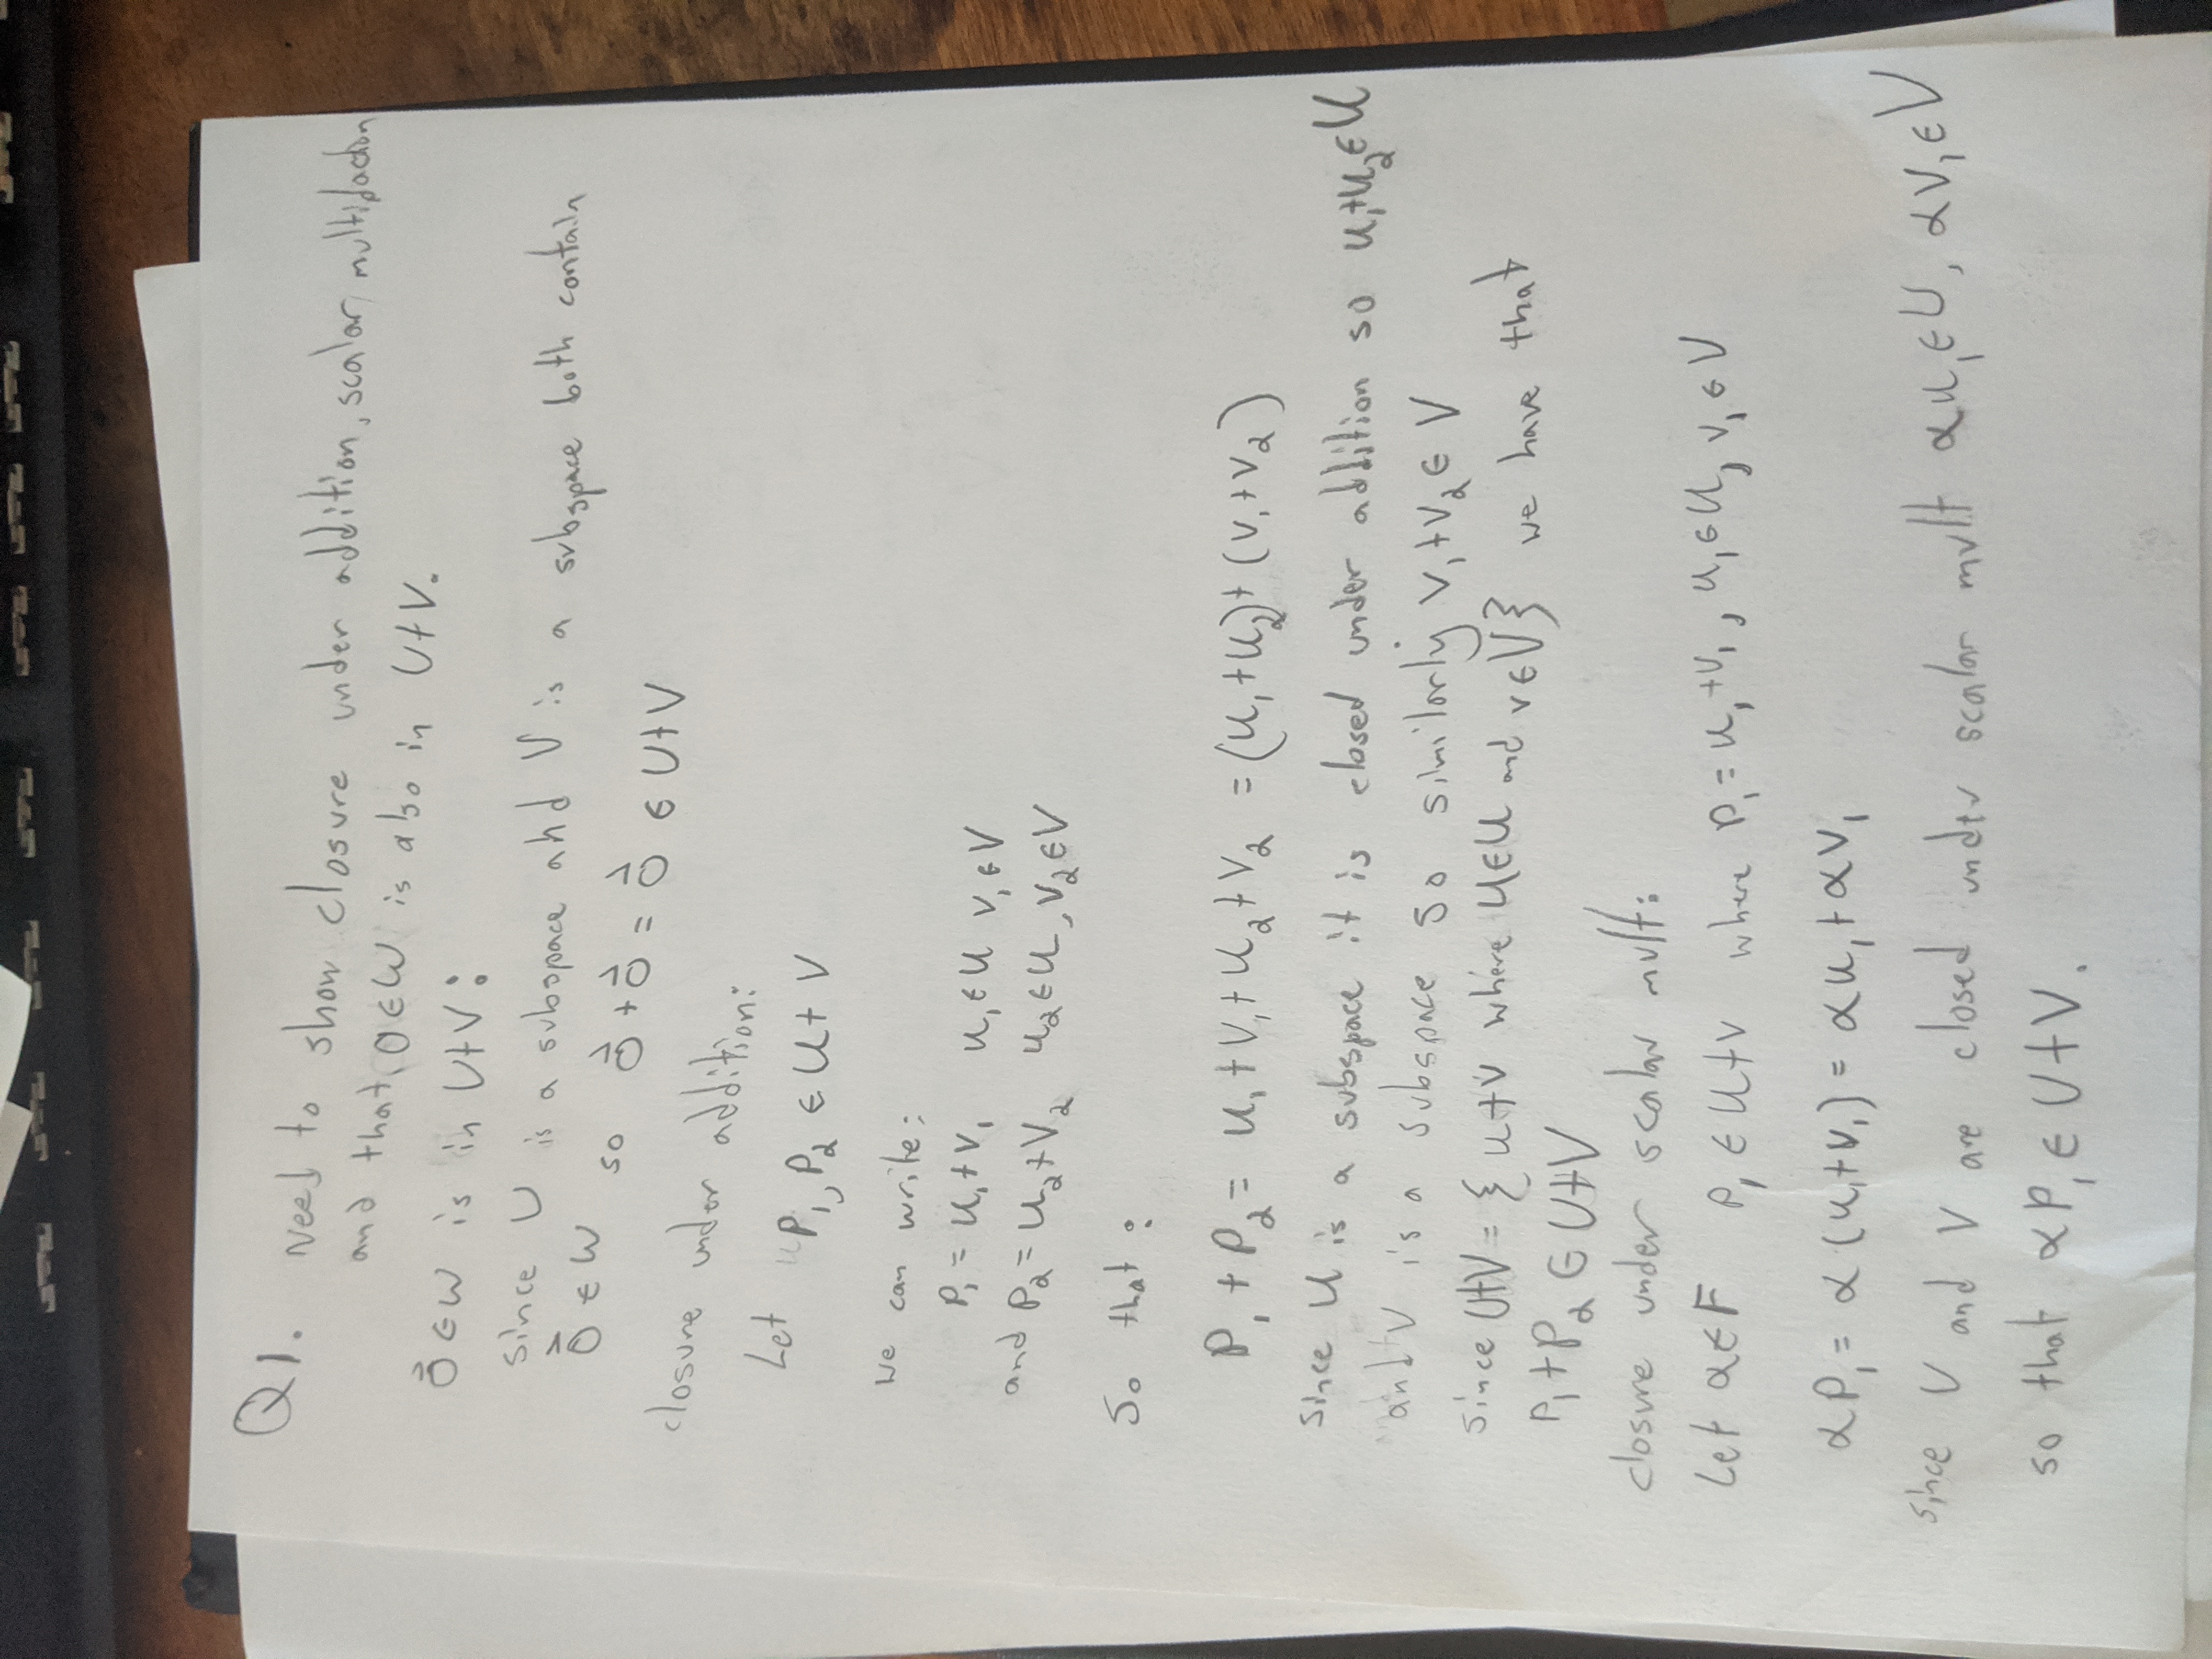 Q1. Need to show closure under addition, scalar multiplication
and that 0∈W is also in U+V.
0⃗ ∈W is in U+V:
since U is a subspace and V is a subspace both contain
0⃗ ∈ W so 0⃗ + 0⃗ = 0⃗ ∈ U+V
closure under addition:
Let P₁, P₂ ∈ U+V
we can write:
P₁ = u₁+v₁ u₁∈U v₁∈V
and P₂ = u₂+v₂ u₂∈U, v₂∈V
So that:
P₁ + P₂ = u₁ + v₁ + u₂ + v₂ = (u₁+u₂)+(v₁+v₂)
since U is a subspace it is closed under addition so u₁+u₂∈U
and V is a subspace so similarly v₁+v₂ ∈ V
since U+V = { u+v where u∈U and v∈V} we have that
P₁+P₂ ∈ U+V
closure under scalar mult:
Let α∈F P₁ ∈ U+V where P₁ = u₁+v₁, u₁∈U, v₁∈V
αP₁ = α(u₁+v₁) = αu₁+αv₁
since U and V are closed under scalar mult αu₁∈U, αv₁∈V
so that αP₁ ∈ U+V.